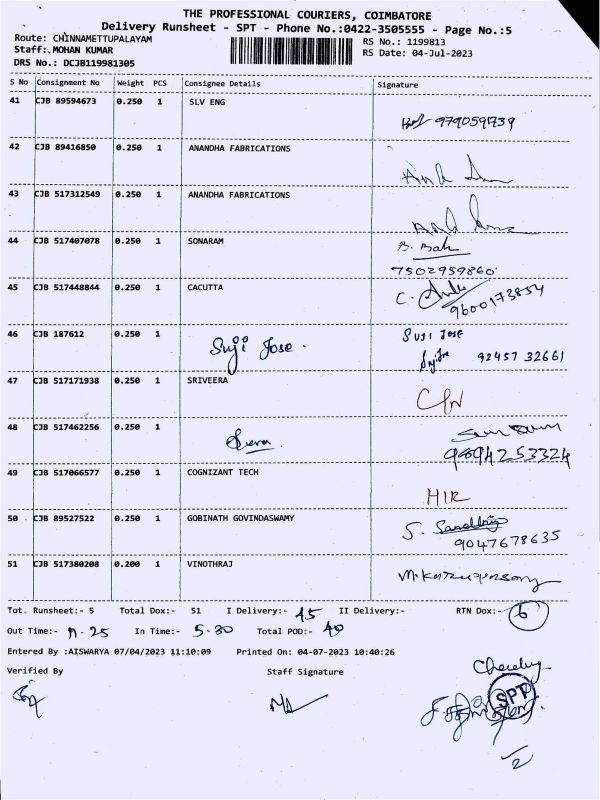 THE PROFESSIONAL COURIERS, COIMBATORE
Delivery Runsheet - SPT - Phone No.:0422-3505555 - Page No.:5
Route: CHINNAMETTUPALAYAM
RS No.: 1199813
Staff:.MOHAN KUMAR
RS Date: 04-Jul-2023
DRS No.: DCJB119981305
S No Consignment No Weight PCS Consignee Details Signature
41 CJB 89594673 0.250 1 SLV ENG
42 CJB 89416850 0.250 1 ANANDHA FABRICATIONS
43 CJB 517312549 0.250 1 ANANDHA FABRICATIONS
44 CJB 517407078 0.250 1 SONARAM
7502959860
45 CJB 517448844 0.250 1 CACUTTA
46 CJB 187612 0.250 1 Suji Jose. SUJI JOSE
92457 32661
47 CJB 517171938 0.250 1 SRIVEERA
48 CJB 517462256 0.250 1
9894253324
49 CJB 517066577 0.250 1 COGNIZANT TECH
HIR
50 CJB 89527522 0.250 1 GOBINATH GOVINDASWAMY
9047678635
51 CJB 517380208 0.200 1 VINOTHRAJ
Tot. Runsheet:- 5 Total Dox:- 51 I Delivery:- 45 II Delivery:- RTN Dox:- 6
Out Time:- 11.25 In Time:- 5.30 Total POD:- 40
Entered By :AISWARYA 07/04/2023 11:10:09 Printed On: 04-07-2023 10:40:26
Verified By Staff Signature
SPT